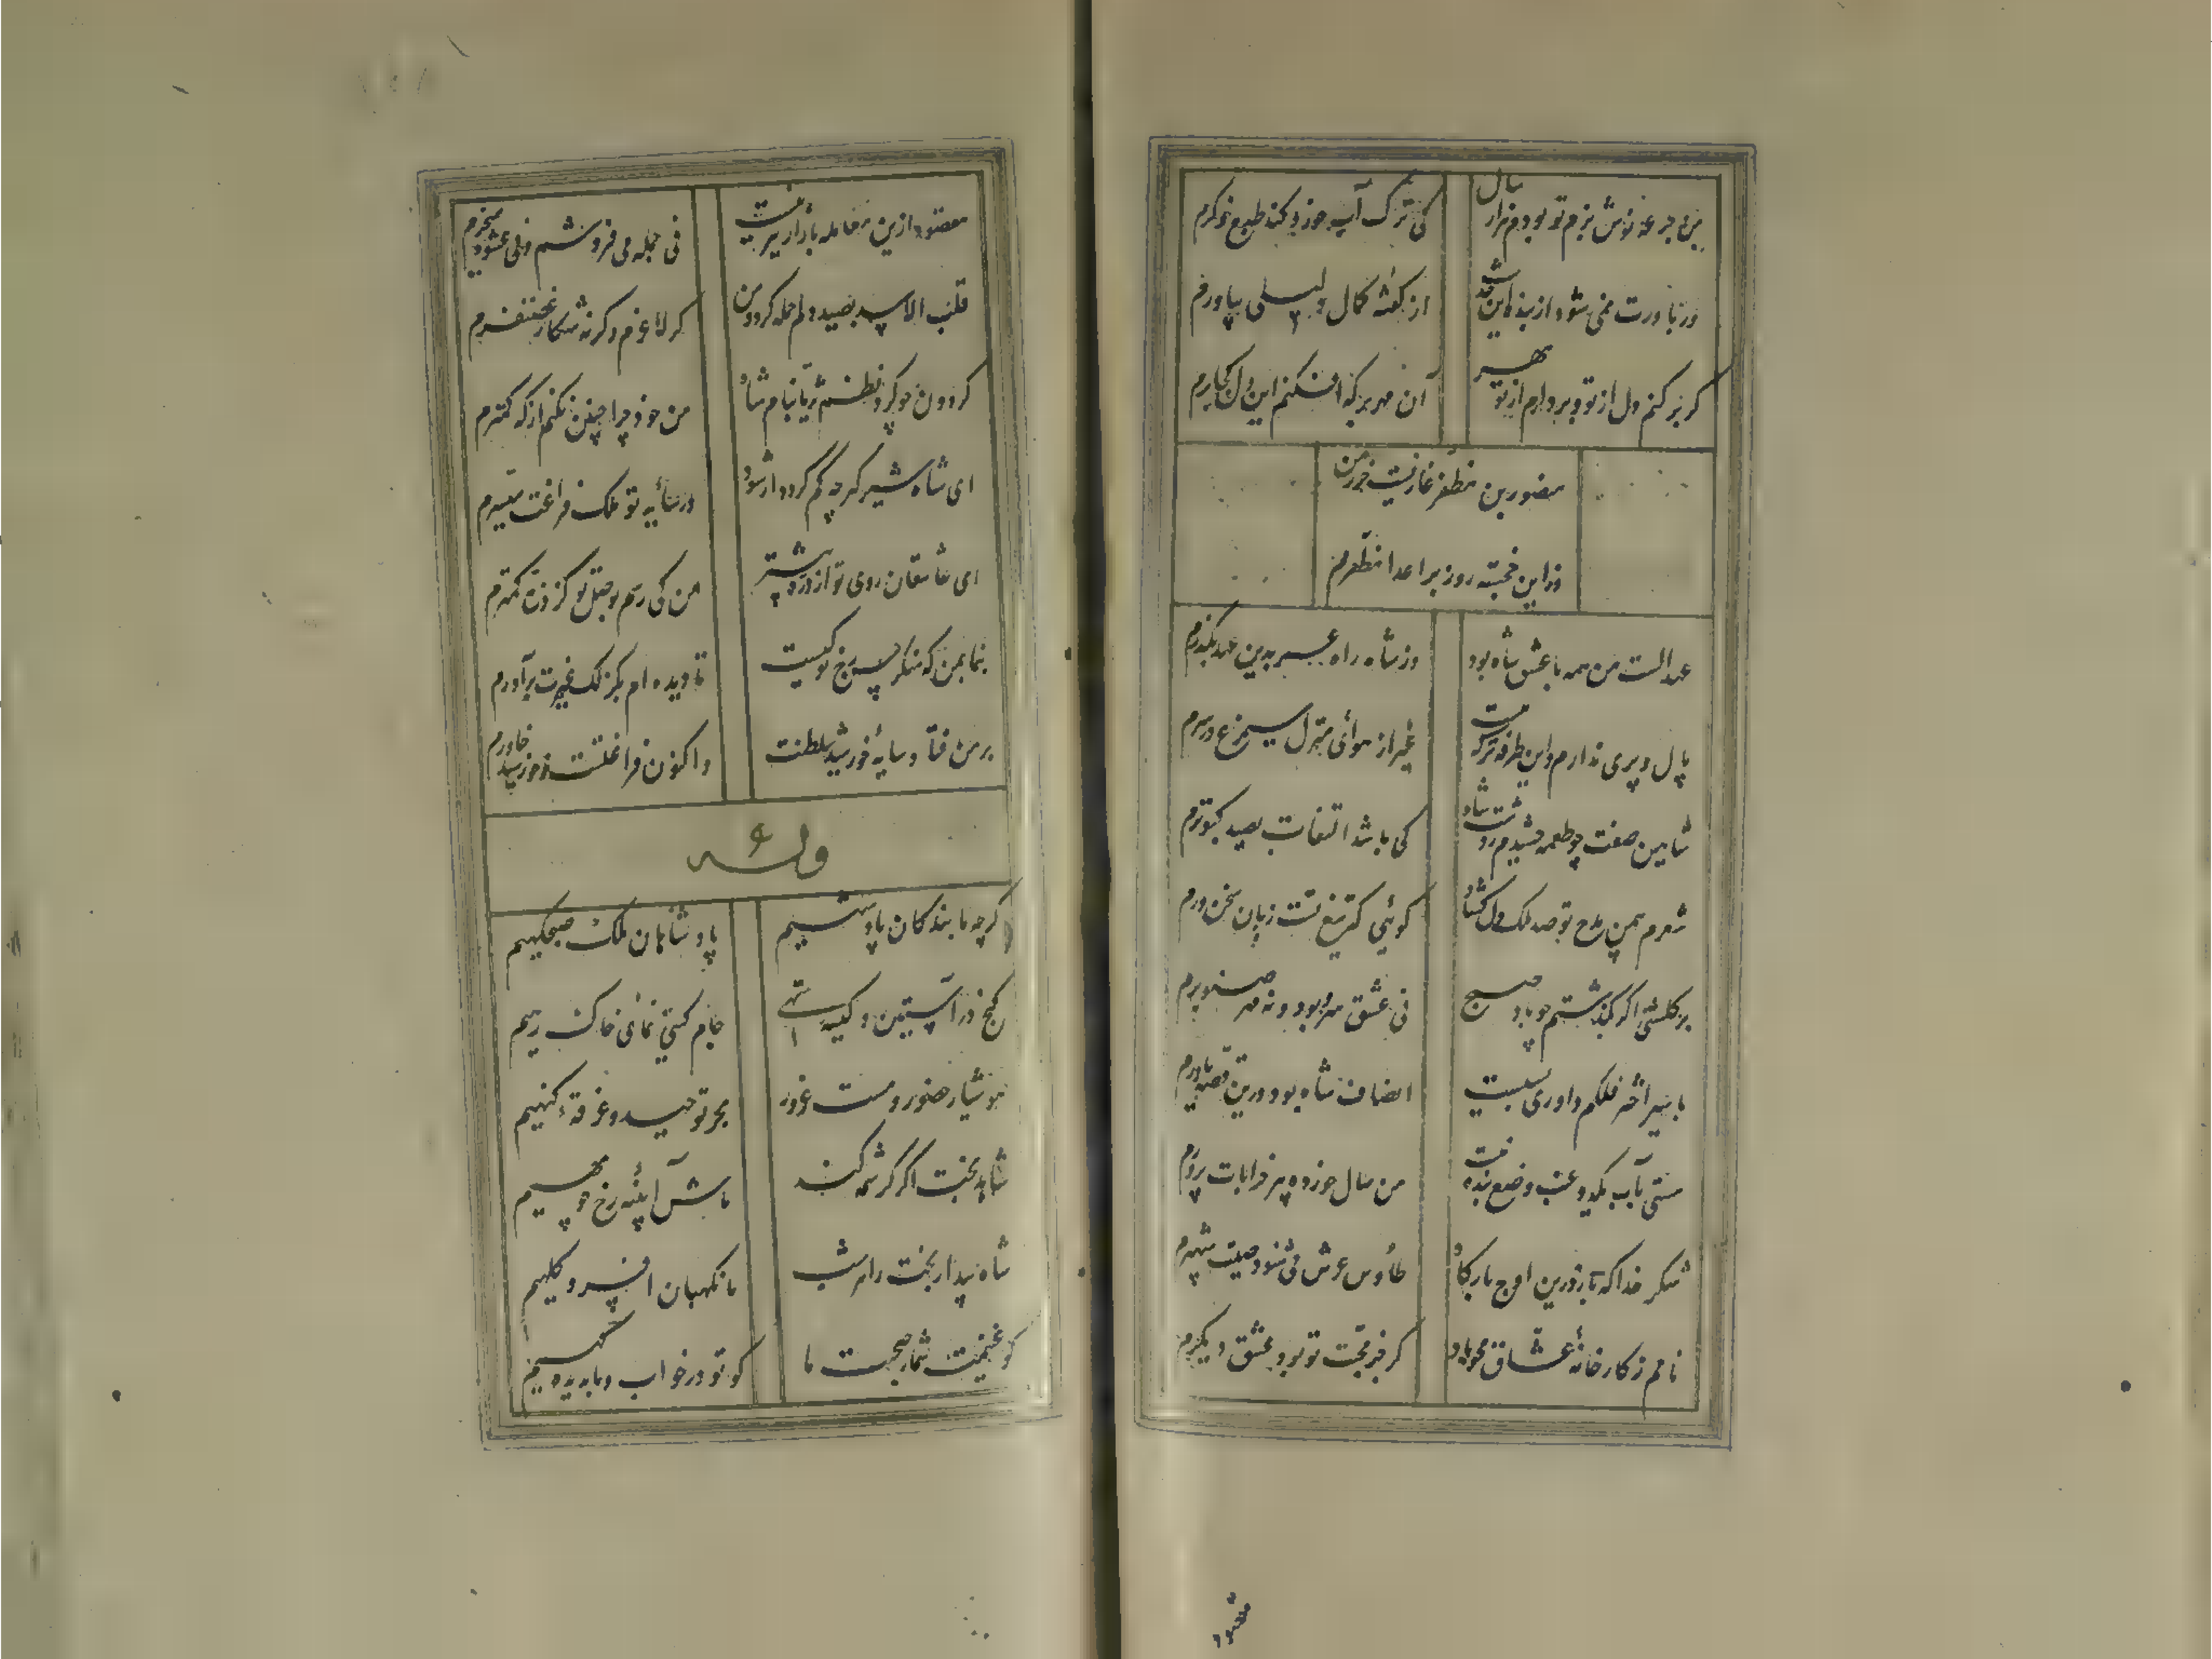 من جرعه نوش بزم تو بودم هزار سال
کی ترک آب خورد کند طبع خوگرم
ور باورت نمی شود از بنده این حدیث
از گفته کمال دلیلی بیاورم
گر بر کنم دل از تو و بردارم از تو مهر
آن مهر بر که افکنم این دل کجا برم
منصور بن مظفر غازیست حرز من
وز این خجسته روز بر اعدا مظفرم
عهد الست من همه با عشق شاه بود
وز شاه راه عمر بدین عهد بگذرم
بال و پری ندارم و این طرفه تر که نیست
غیر از هوای منزل سیمرغ در سرم
شاهین صفت چو طعمه چشیدم ز دست شاه
کی باشد التفات بصید کبوترم
شعرم بیمن مدح تو صد ملک دل گشاد
گوئی که تیغ تست زبان سخن ورم
بر گلشنی اگر بگذشتم چو باد صبح
نی عشق سرو بود و نه مهر صنوبرم
با سیر اختر فلکم داوری بسیست
انصاف شاه بود درین قصه یاورم
مستی بآب یکدو عنب وضع بنده نیست
من سال خورده پیر خرابات پرورم
شکر خدا که باز درین اوج بارگاه
طاوس عرش می شنود صیت شهپرم
نامم ز کارخانه عشاق محو باد
گر جز محبت تو بود عشق دیگرم
مقصود
مقصود ازین معامله بازار تیزیست
نی جمله می فروشم و نی عشوه میخرم
قلب الاسد بصید دلم حمله کرد و من
گر لاغرم وگرنه شکار غضنفرم
گردون چو کرد نظم ثریا بنام شاه
من خود چرا چنین نکنم از که کمترم
ای شاه شیرگیر چه کم گردد ار شود
در سایه تو ملک فراغت میسرم
ای عاشقان روی تو از ذره بیشتر
من کی رسم بوصل تو کز ذره کمترم
بنما بمن که منکر حسن رخ تو کیست
تا دیده اش بگزلک غیرت برآورم
بر من فتاد سایه خورشید سلطنت
واکنون فراغتست ز خورشید خاورم
وله
گرچه ما بندگان پادشهیم
پادشاهان ملک صبحگهیم
گنج در آستین و کیسه تهی
جام گیتی نمای خاک رهیم
هوشیار حضور و مست غرور
بحر توحید و غرقه گنهیم
شاهد بخت اگر کرشمه کند
ماش آینه رخ چو مهیم
شاه بیدار بخت را هر شب
ما نگهبان افسر و کلهیم
گو غنیمت شمار صحبت ما
کو تو در خواب و ما بدیده گهیم